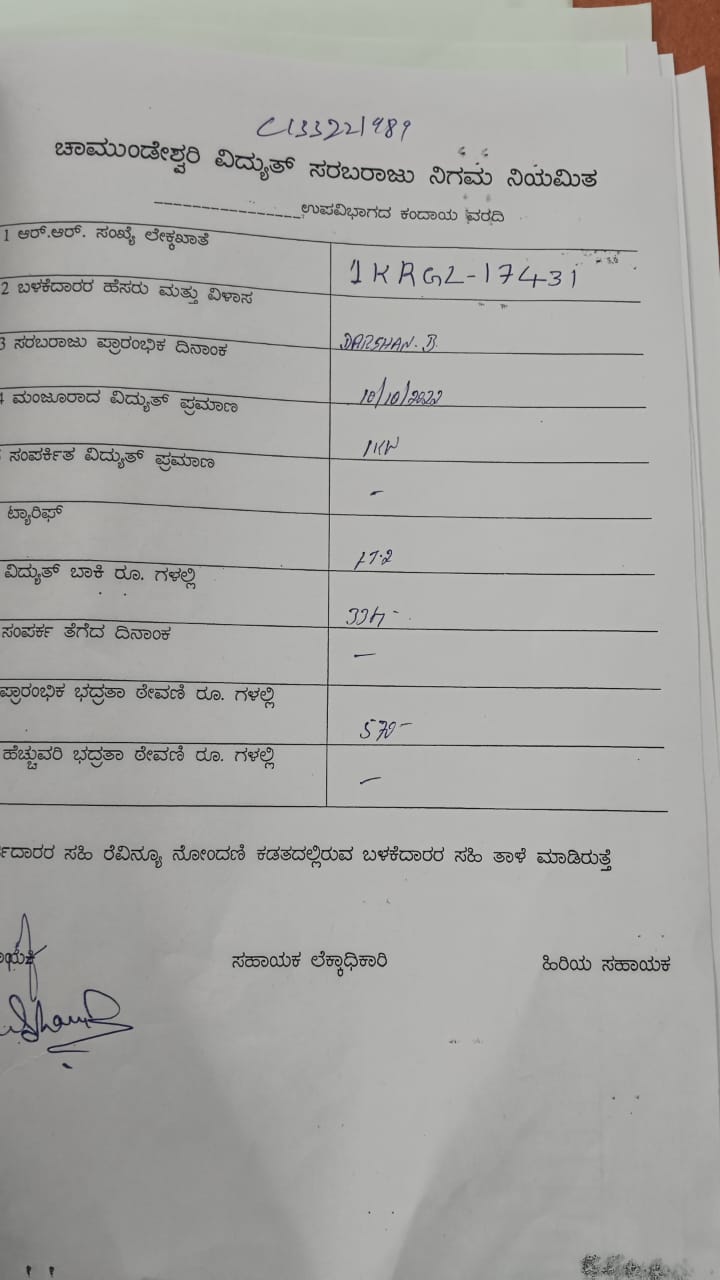 C133221989
ಚಾಮುಂಡೇಶ್ವರಿ ವಿದ್ಯುತ್ ಸರಬರಾಜು ನಿಗಮ ನಿಯಮಿತ
________________ಉಪವಿಭಾಗದ ಕಂದಾಯ ವರದಿ
1 ಆರ್.ಆರ್. ಸಂಖ್ಯೆ ಲೇಕ್ಕಖಾತೆ 1KRGL-17431
2 ಬಳಕೆದಾರರ ಹೆಸರು ಮತ್ತು ವಿಳಾಸ DARSHAN.B.
3 ಸರಬರಾಜು ಪ್ರಾರಂಭಿಕ ದಿನಾಂಕ 10/10/2022
4 ಮಂಜೂರಾದ ವಿದ್ಯುತ್ ಪ್ರಮಾಣ 1KW
ಸಂಪರ್ಕಿತ ವಿದ್ಯುತ್ ಪ್ರಮಾಣ -
ಟ್ಯಾರಿಫ್ LT-2
ವಿದ್ಯುತ್ ಬಾಕಿ ರೂ. ಗಳಲ್ಲಿ
ಸಂಪರ್ಕ ತೆಗೆದ ದಿನಾಂಕ -
ಪ್ರಾರಂಭಿಕ ಭದ್ರತಾ ಠೇವಣಿ ರೂ. ಗಳಲ್ಲಿ 570-
ಹೆಚ್ಚುವರಿ ಭದ್ರತಾ ಠೇವಣಿ ರೂ. ಗಳಲ್ಲಿ -
ಸಹಿ ರೆವಿನ್ಯೂ ನೋಂದಣಿ ಕಡತದಲ್ಲಿರುವ ಬಳಕೆದಾರರ ಸಹಿ ತಾಳೆ ಮಾಡಿರುತ್ತೆ
ಸಹಾಯಕ ಲೆಕ್ಕಾಧಿಕಾರಿ ಹಿರಿಯ ಸಹಾಯಕ